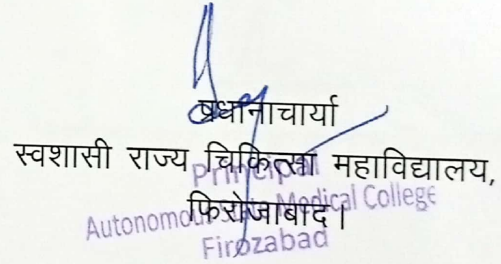 प्रधानाचार्या
स्वशासी राज्य चिकित्सा महाविद्यालय,
Principal
फिरोजाबाद।
Autonomous Medical College
Firozabad